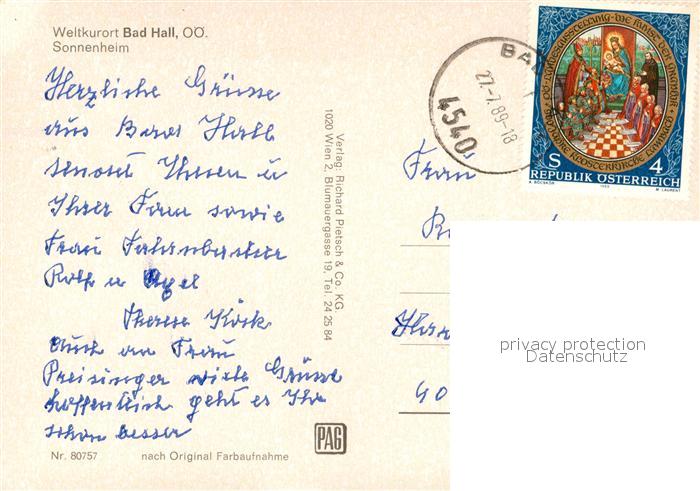 Weltkurort Bad Hall, OÖ.
Sonnenheim
Herzliche Grüsse
aus Bad Hall
sendet Ihnen u
Ihrer Fam sowie
Frau
Rolf u
Therese
Auch an Frau
Preisinger viele Grüsse
hoffentlich geht es Ihr
schon besser
Nr. 80757 nach Original Farbaufnahme
Verlag: Richard Pietsch & Co. KG.
1020 Wien 2, Blumauergasse 19, Tel. 24 25 84
PAG
BAD
27.-7.89-18
4540
S 4
REPUBLIK ÖSTERREICH
A. BÖCSKÖR 1989 M. LAURENT
Frau
40
privacy protection
Datenschutz